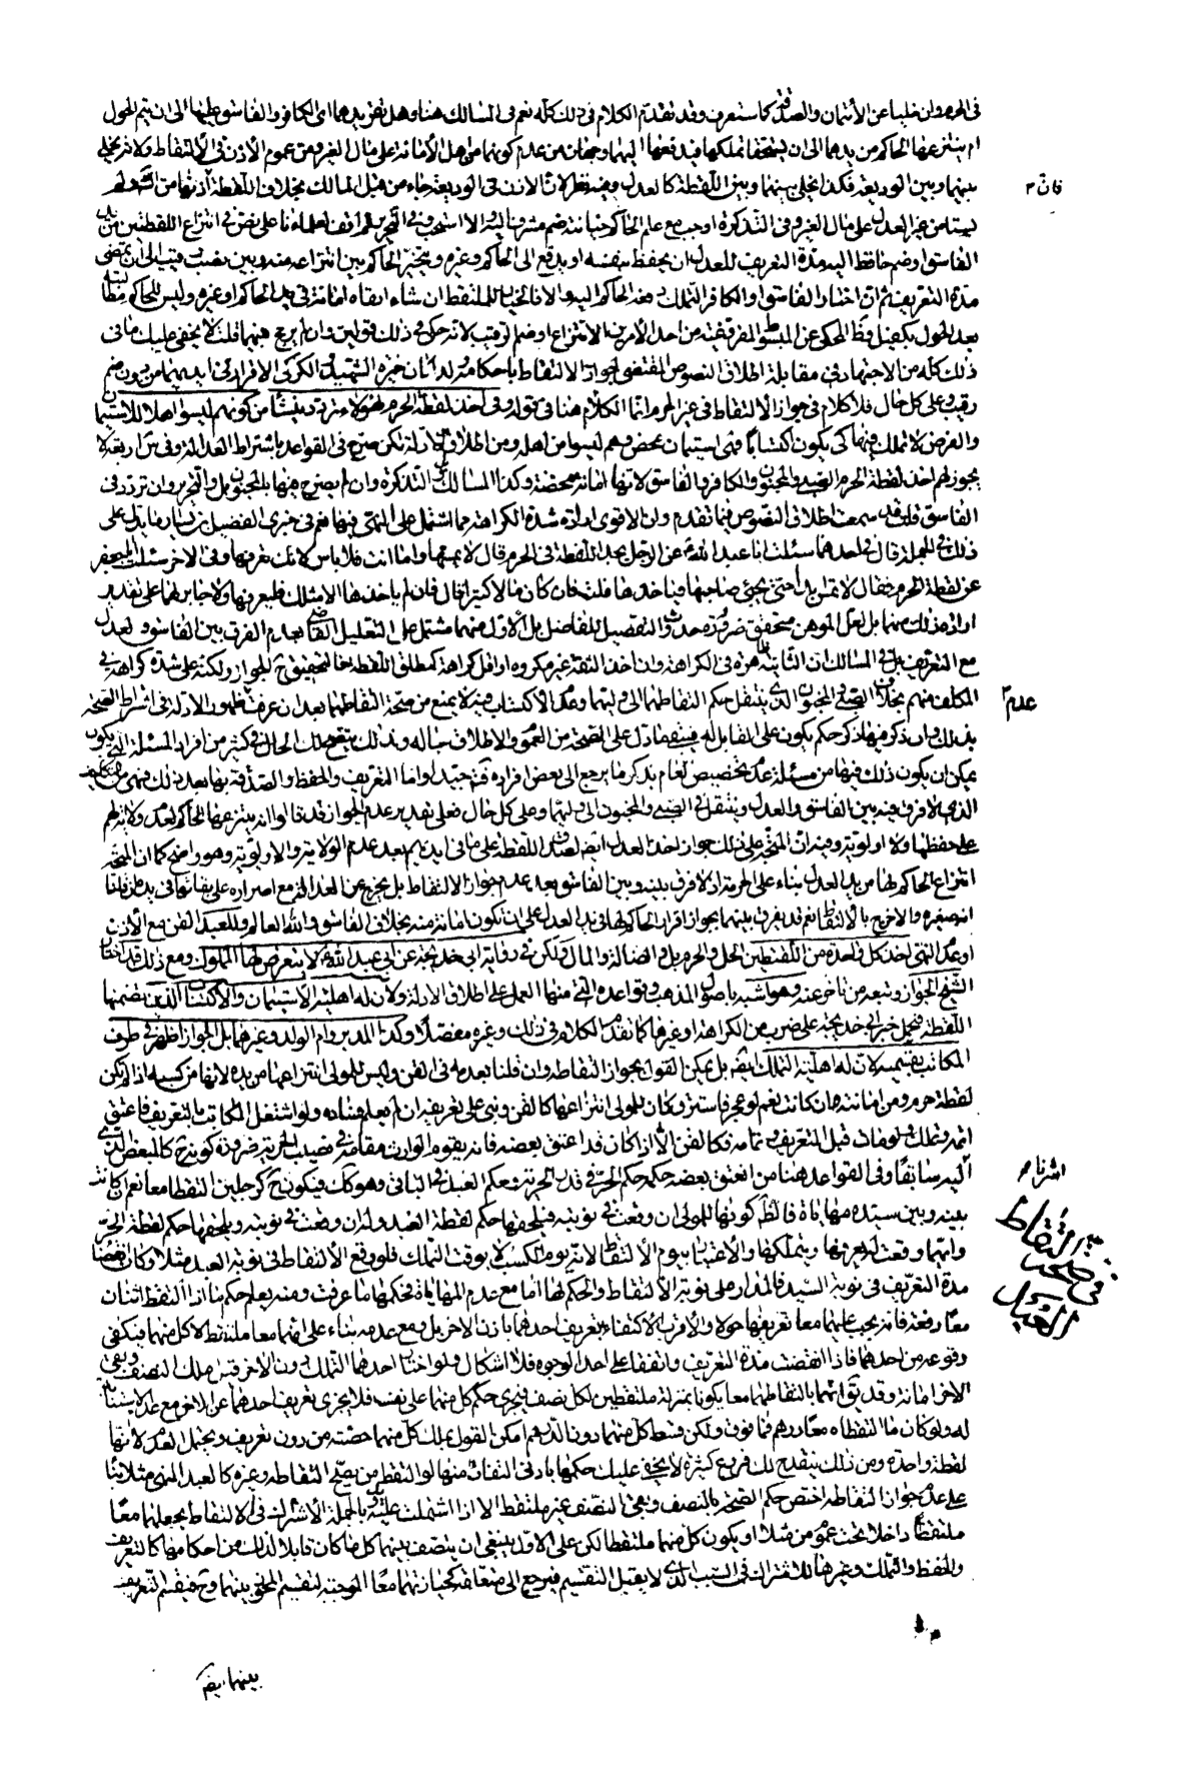 في الحرم وان غلبا عن الأئتمان والصدقة كما ستعرف وقد تقدم الكلام في ذلك كله نعم في المسالك هنا وهل تقر يدهما اى الكافر والفاسق عليها الى ان يتم الحول
ام ينتزعها الحاكم من يدهما الى ان يستحقا تملكها فيدفعها اليهما وجهان من عدم كونهما من اهل الأمانة على مال الغير ومن عموم الأذن في الألتقاط ولانه يخلى
بينهما وبين الوديعة فكذا يخلى بينهما وبين اللقطة كالعدل وفيه نظر لان الاذن في الوديعة جاء من قبل المالك بخلاف اللقطة
فان
من غير العدل على مال الغير وفي التذكرة اوجب مع علم الحاكم خيانته ضم مشرف اليه والا استحب وفي التحرير لم اقف لعلمائنا على نص في انتزاع اللقطتين من يد
الفاسق او ضم حافظ اليه مدة التعريف للعدل ان يحفظ بنفسه او يدفع الى الحاكم وغيره ويتخير الحاكم بين انتزاعه منه وبين نصب رقيب الى ان تمضى
مدة التعريف ثم ان اختار الفاسق او الكافر التملك دفعه الحاكم اليه والا فالخيار للملتقط ان شاء ابقاه امانة في يد الحاكم او غيره وليس للحاكم مطالبته
بعد الحول بكفيل وظ المحكى عن المبسوط المفروغية من احد الأمرين الأنتزاع او ضم الرقيب لانه حكى في ذلك قولين وان لم يرجح فيهما قلت لا يخفى عليك ما في
ذلك كله من الاجتهاد في مقابلة اطلاق النصوص المقتضى لجواز الالتقاط باحكامه ولذا كان خيرة الشهيد والكركى الاقرار في ايديهما من دون ضم
رقيب وعلى كل حال فلا كلام في جواز الألتقاط في غير الحرم انما الكلام هنا في قوله وفي اخذ لقطة الحرم لهؤلاء تردد ينشأ من كونهم ليسوا اهلا للاستيمان
والفرض لا تملك فيها كى يكون اكتسابا فهى استيمان محض وهم ليسوا من اهله ومن اطلاق الادلة لكن صرح في القواعد باشتراط العدالة وفي لا
يجوز لهم اخذ لقطة الحرم الصبى والمجنون والكافر والفاسق لانها امانة محضة وكذا المسالك بل التذكرة وان لم يصرح فيها بالمجنون بل والتحرير وان تردد في
الفاسق قلت قد سمعت اطلاق النصوص فيما تقدم وان الاقوى ارادة شدة الكراهة مما اشتمل على النهى فيها نعم في خبرى الفضيل بن يسار ما يدل على
ذلك في الجملة قال في احدهما سئلت ابا عبد الله عن الرجل يجد اللقطة في الحرم قال لا يمسها واما انت فلا باس لانك تعرفها وفي الاخر سئلت ابا جعفر
عن لقطة الحرم فقال لا تمس ابدا حتى يجيئ صاحبها فياخذها قلت فان كان مالا كثيرا قال فان لم ياخذها الا مثلك فليعرفها ولا جابر لهما على تقدير
ارادة ذلك منهما بل لعل الموهن متحقق ضرورة التفصيل للفاضل بل الأول منهما مشتمل على التعليل القاضى بعدم الفرق بين الفاسق والعدل
مع التعريف بل في المسالك ان الثانية ظاهرة في الكراهة وان اخذ الثقة غير مكروه او اقل كراهة كمطلق اللقطة فالتحقيق ح الجواز ولكنه على شدة كراهة في
المكلف منهم بخلاف الصبى والمجنون الذى ينتقل حكم التقاطهما الى وليهما وعدم الاكتساب فيه لا يمنع من صحة التقاطهما بعد ان عرفت ظهور الادلة في اشتراط الصحة
عدم
بذلك وان ذكر فيها ذكر حكم يكون على القابل له فيبقى ما دل على الصحة من العموم والاطلاق بحاله وبذلك يتضح لك الحال في كثير من افراد المسئلة التى يكون
يمكن ان يكون ذلك فيها من مسئلة عدم تخصيص العام بذكر ما يرجع الى بعض افراده فت جيدا واما التعريف والحفظ والصدقة بها بعد ذلك فهى من تكليف
الذى لا فرق فيه بين الفاسق والعدل وينتقل في الصبى والمجنون الى وليهما وعلى كل حال فعلى تقدير عدم الجواز قد قالوا انه ينتزعها الحاكم لعدم ولاية لهم
على حفظها ولا اولوية وفيه ان المتجه على ذلك جواز اخذ العدل ايضا لصدق اللقطة على ما في ايديهم بعد عدم الولاية والاولوية وهو واضح كما ان المتجه
انتزاع الحاكم لها من يد العدل بناء على الحرمة اذ لا فرق بينه وبين الفاسق بعد عدم جواز الالتقاط بل يخرج عن العدالة مع اصراره على بقائها في يده ان قلنا
انه صغيرة والا خرج بالالتقاط نعم قد يفرق بينهما بجواز اقرار الحاكم لها في يد العدل على ان تكون امانة منه بخلاف الفاسق والله العالم وللعبد القن مع الأذن
او عدم النهى اخذ كل واحدة من اللقطتين الحل والحرم بل والضالة والمال ولكن في رواية ابى خديجة عن ابى عبد الله لا يتعرض لها المملوك ومع ذلك قد اختار
الشيخ الجواز وتبعه من تاخر عنه وهو اشبه باصول المذهب وقواعده التى منها العمل على اطلاق الادلة ولان له اهلية الاستيمان والاكتساب اللذين يتضمنها
اللقطة فيحمل خبر ابى خديجة على ضرب من الكراهة او غيرها كما تقدم الكلام في ذلك وغيره مفصلا وكذا المدبر وام الولد وغيرهما بل الجواز اظهر في طرف
المكاتب بقسميه لان له اهلية التملك ايضا بل يمكن القول بجواز التقاطه وان قلنا بعدمه في القن وليس للمولى انتزاعها من يده لانها من كسبه اذا لم تكن
لقطة حرم ومن امانته ان كانت نعم لو عجز فاسترق كان للمولى انتزاعها كالقن وبنى على تعريفه ان لم يعلم فساده ولو اشتغل المكاتب بالتعريف فاعتق
اتمه وتملك ولو مات قبل التعريف او تمامه فكالقن الا اذا كان قد اعتق بعضه فانه يقوم الوارث مقامه في نصيب الحرية ضرورة كونه ح كالمبعض الذى
اشرنا
اليه سابقا وفي القواعد هنا من انعتق بعضه حكمه حكم الحر في قدر الحرية وحكم العبد في الباقى وهو كك فيكون ح كرجلين التقطا معا نعم ان كانت
بينه وبين سيده مهاياة فالظ كونها للمولى ان وقعت في نوبته فيلحقها حكم لقطة العبد وله ان وقعت في نوبته ويلحقها حكم لقطة الحر
في صحة التقاط العبيد
وايتهما وقعت له يعرفها ويتملكها والأعتبار بيوم الألتقاط لانه يوم الكسب لا بوقت التملك فلو وقع الألتقاط في نوبة العبد مثلا وكان انقضاء
مدة التعريف في نوبة السيد فالمدار على نوبة الالتقاط والحكم لها اما مع عدم المهاياة فحكمها ما عرفت ومنه يعلم حكم ما اذا التقط اثنان
معا دفعة فانه يجب عليهما معا تعريفها حولا والأقرب الأكتفاء بتعريف احدهما باذن الاخر بل ومع عدمه بناء على انهما معا ملتقط لا كل منهما فيكفى
وقوعه من احدهما فاذا انقضت مدة التعريف واتفقا على احد الوجوه فلا اشكال ولو اختار احدهما التملك دون الاخر قيل ملك النصف وبقى
الاخر امانة وقد يق انهما بالتقاطهما معا يكونا بمنزلة ملتقطين لكل نصف فيجرى حكم كل منهما على نفسه فلا يجزى تعريف احدهما عن الاخر مع عدم
له ولو كان ما التقطاه معا درهم فما فوق ولكن قسط كل منهما دون الدرهم امكن القول بملك كل منهما حصته من دون تعريف ويحتمل العدم لانها
لقطة واحدة ومن ذلك ينقدح لك فروع كثيرة لا يخفى عليك حكمها بادنى التفات منها لو التقط من يصح التقاطه وغيره كالعبد المنهى مثلا بناء
على عدم جواز التقاطه اختص حكم الصحة بالنصف وبقى النصف غير ملتقط الا اذا اشتملت عليه وبالجملة الأشتراك في الالتقاط يجعلهما معا
ملتقطا داخلا تحت عموم من مثلا او يكون كل منهما ملتقطا لكن على الاول ينبغى ان يتنصف بينهما كل ما كان قابلا لذلك من احكامها كالتعريف
والحفظ والتملك وغيرها للاشتراك في السبب الذى لا يقبل التقسيم فيرجع الى كحيازتهما معا الموجبة لتقسيم المحوز بينهما وح فيقسم التعريف
بينهما ايضا